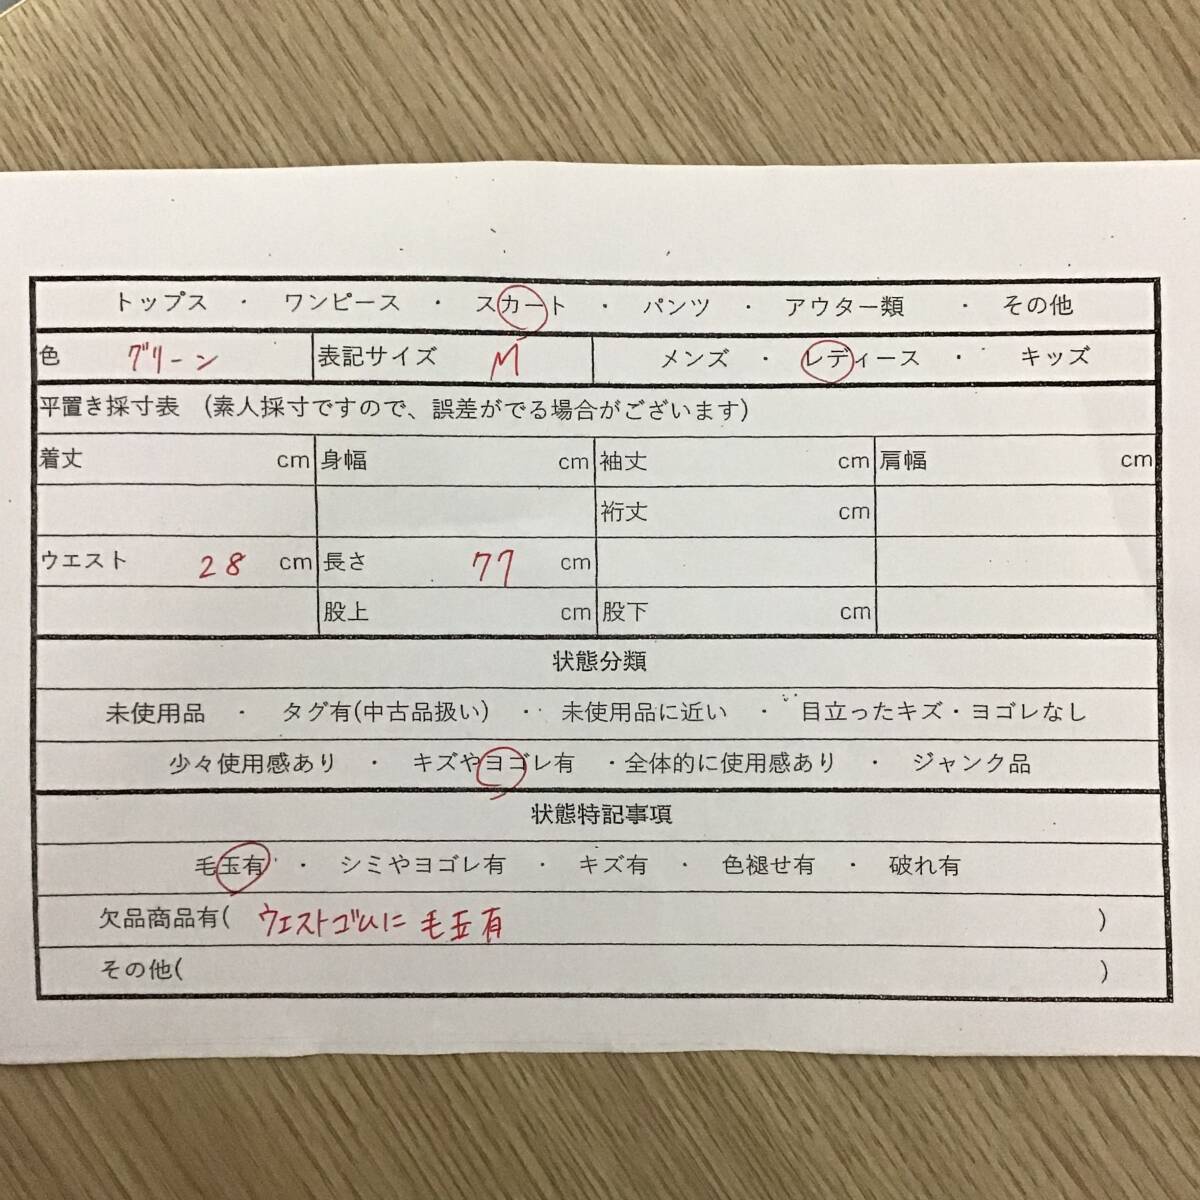 トップス ・ ワンピース ・ スカート ・ パンツ ・ アウター類 ・ その他
色 グリーン 表記サイズ M メンズ ・ レディース ・ キッズ
平置き採寸表 (素人採寸ですので、誤差がでる場合がございます)
着丈 cm 身幅 cm 袖丈 cm 肩幅 cm
裄丈 cm
ウエスト 28 cm 長さ 77 cm
股上 cm 股下 cm
状態分類
未使用品 ・ タグ有(中古品扱い) ・ 未使用品に近い ・ 目立ったキズ・ヨゴレなし
少々使用感あり ・ キズやヨゴレ有 ・全体的に使用感あり ・ ジャンク品
状態特記事項
毛玉有 ・ シミやヨゴレ有 ・ キズ有 ・ 色褪せ有 ・ 破れ有
欠品商品有( ウエストゴムに毛玉有 )
その他( )